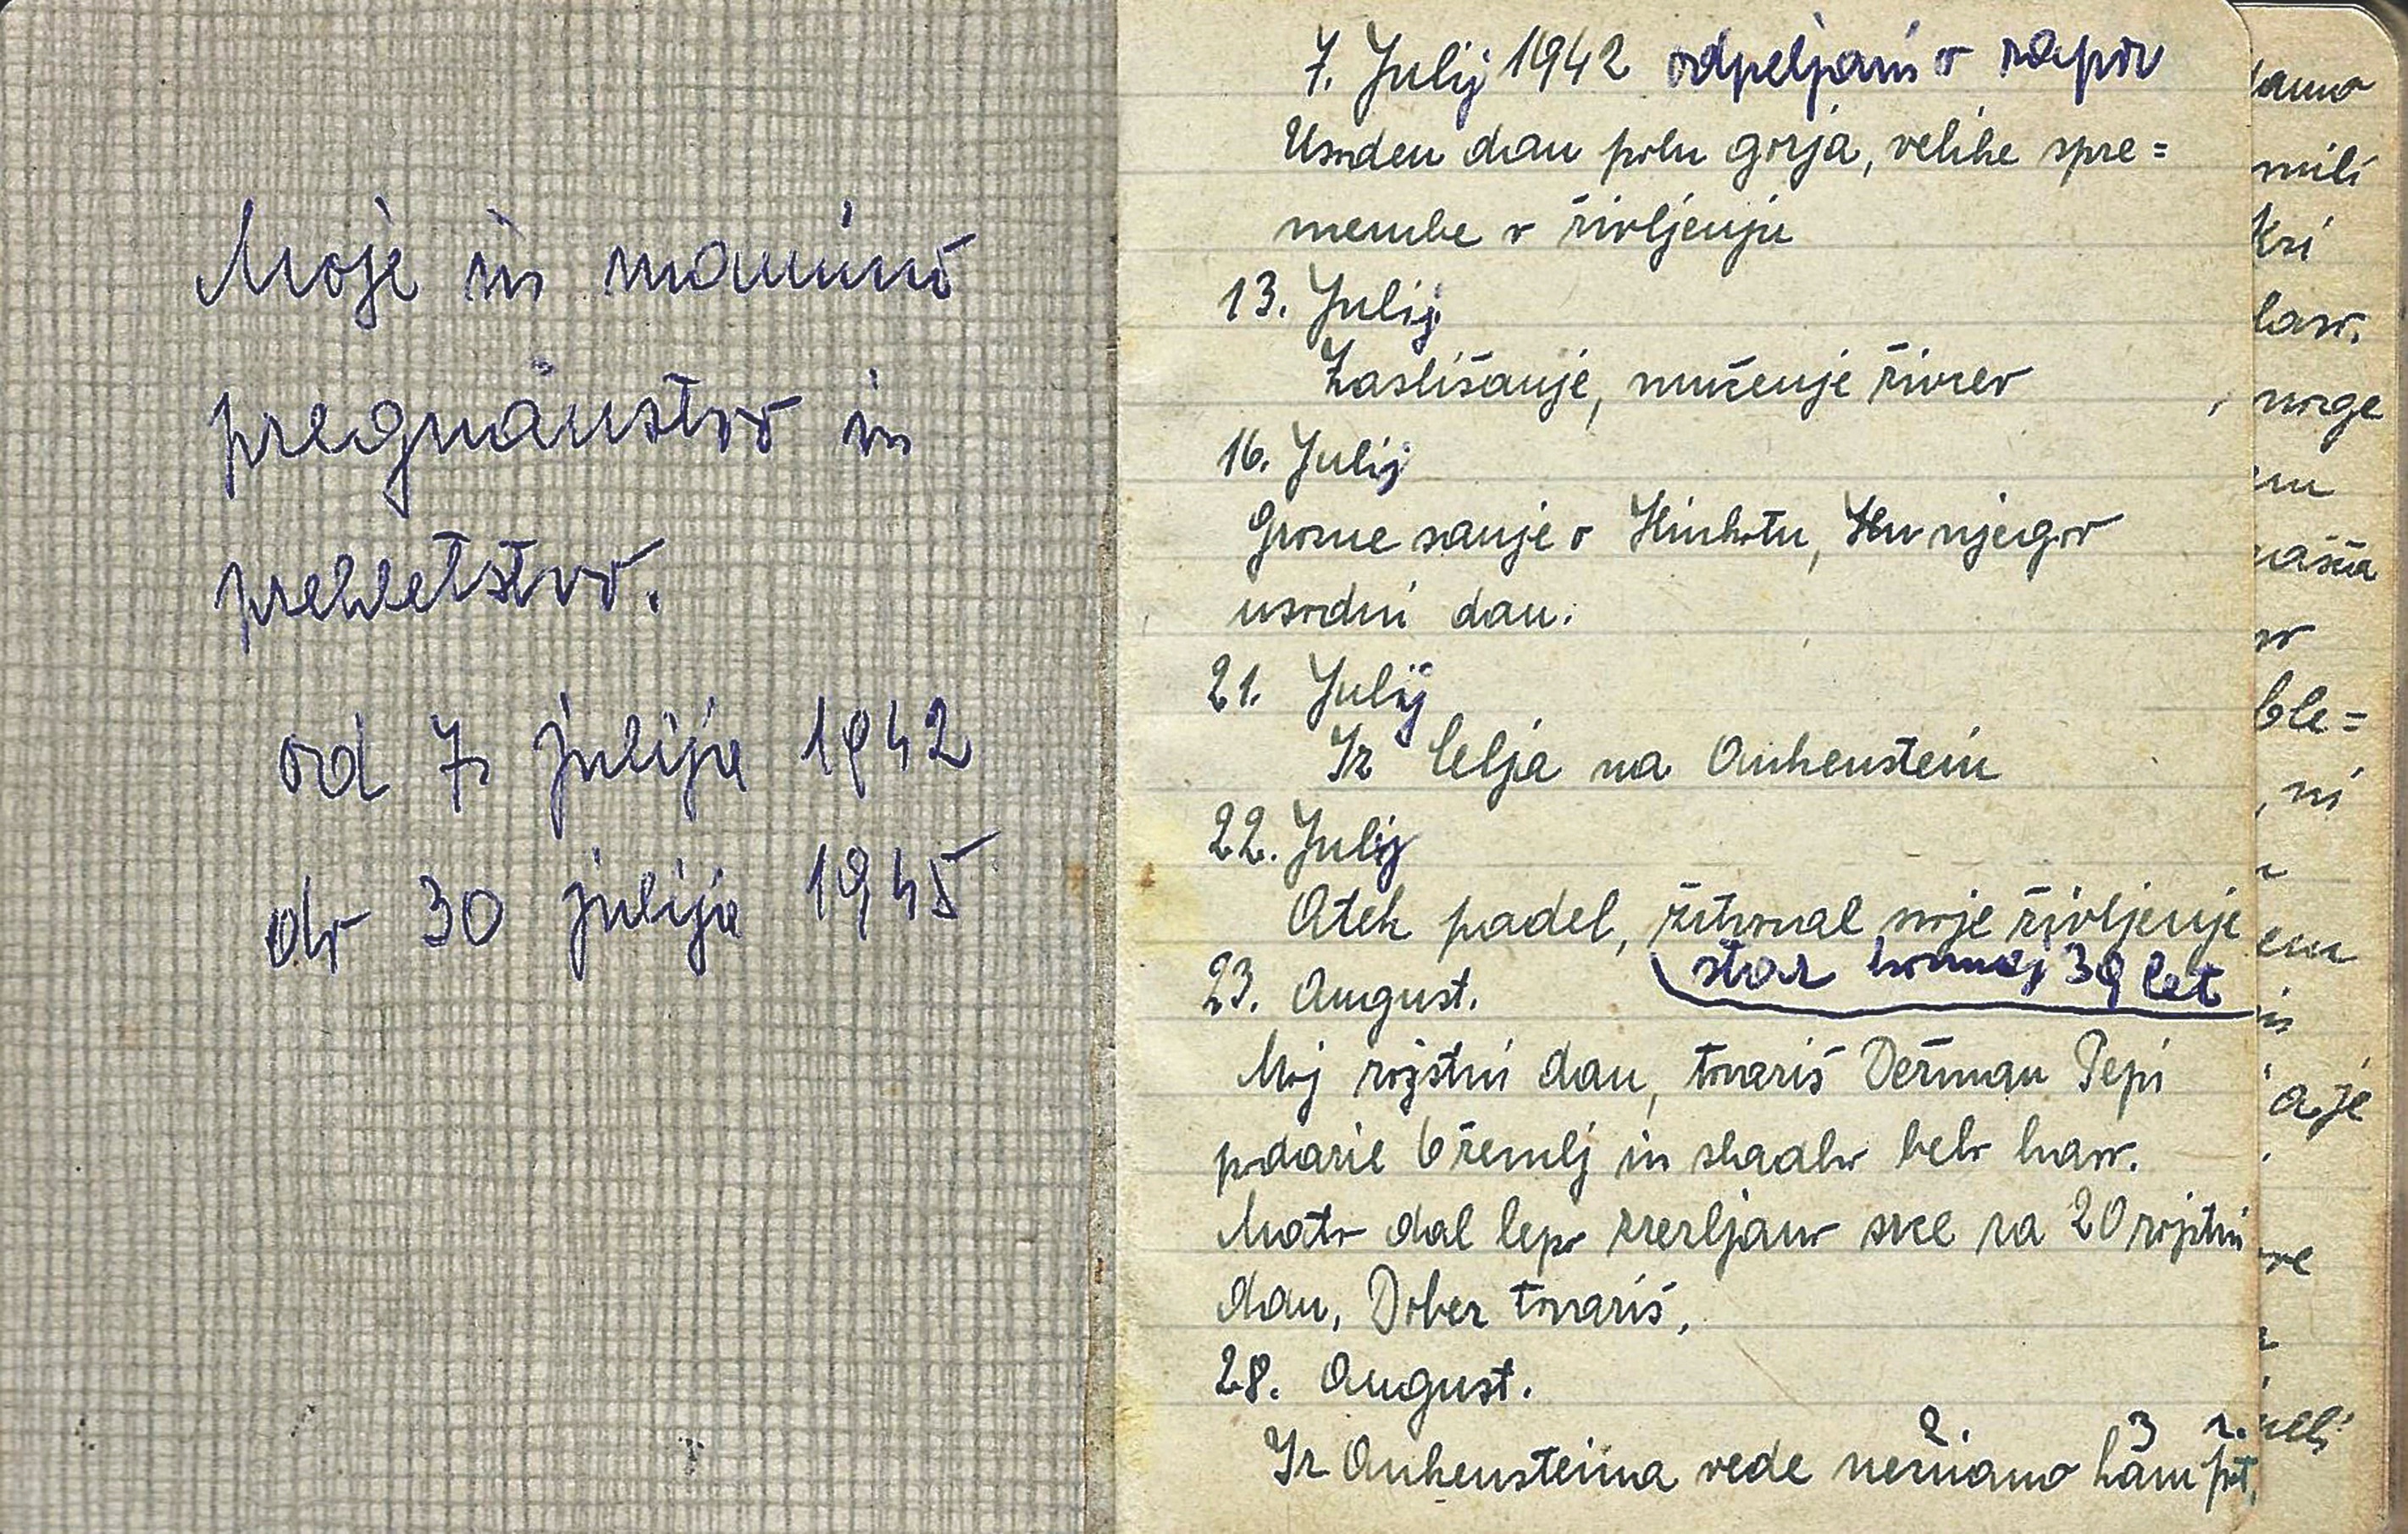 Moje in mamino
pregnanstvo in
prekletstvo.
od 7. julija 1942
do 30 julija 1945
7. Julij 1942 odpeljani v zapor
Usoden dan poln gorja, velike spre=
membe v življenju
13. Julij
Zaslišanje, mučenje živcev
16. Julij
Grozne sanje o Hinkotu, njegov
usodni dan.
21. Julij
Iz Celja na Ankenstein
22. Julij
Otek padel, žrtvoval svoje življenje
star komaj 39 let
23. August.
Moj rojstni dan, tovariš Dežman Pepi
podaril 6 žemlj in sladko belo kavo.
Mato dal lepo zrezljano srce za 20 rojstni
dan. Dober tovariš.
28. August.
Iz Ankensteina vede neznano kam pot,
2. 3
damo
mili
ksi
lavo.
noge
em
ble=
, ni
em
in
a je